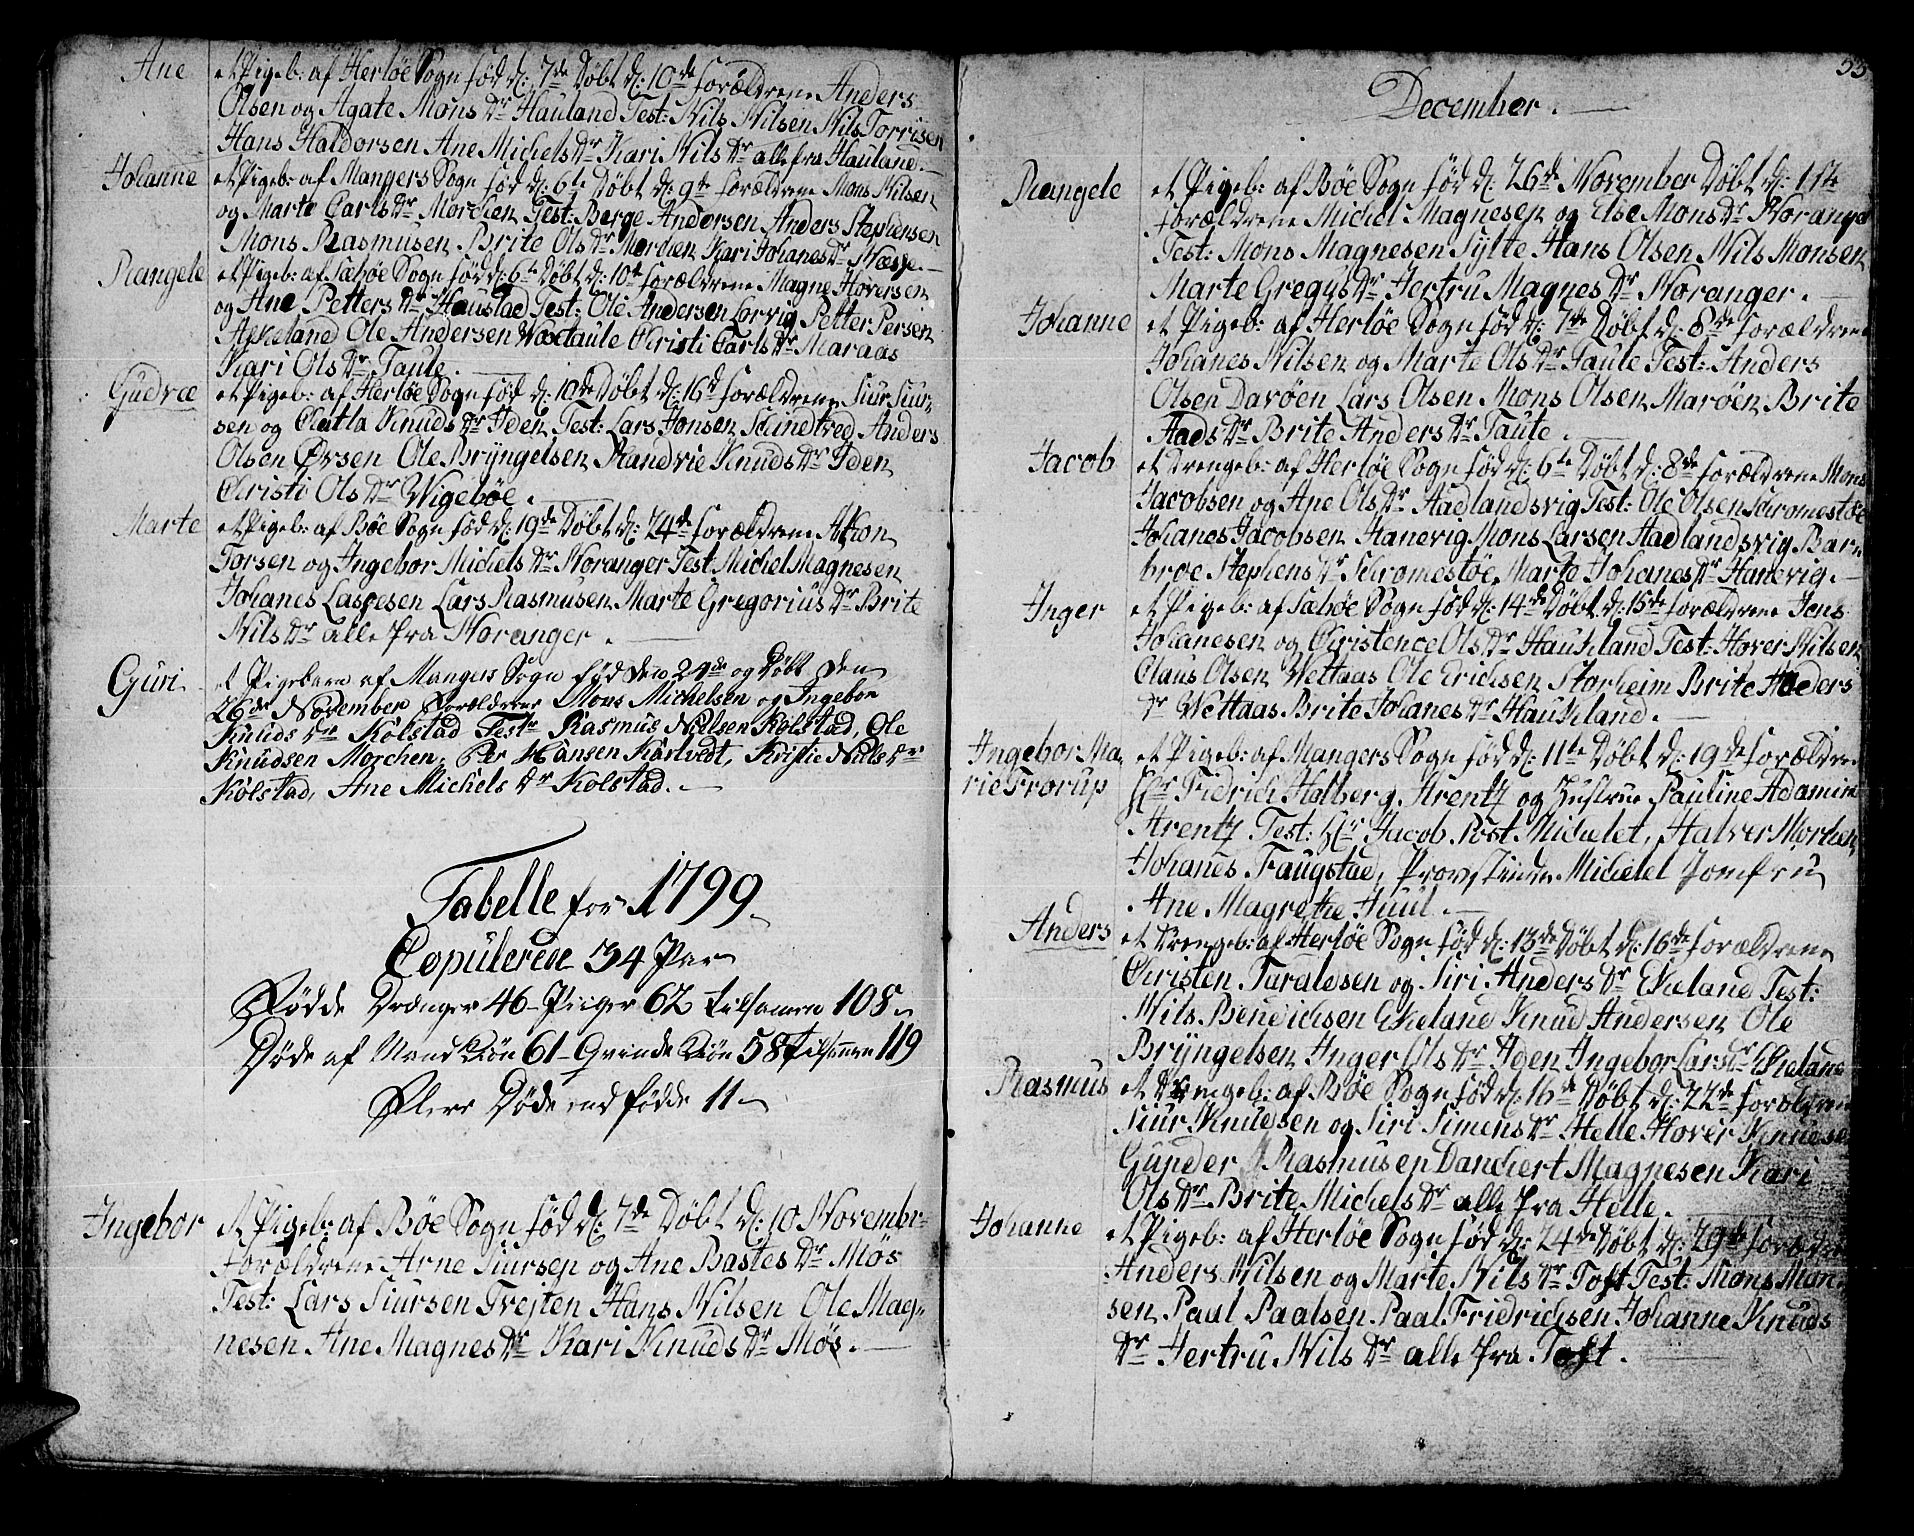 Ane
et Pigeb: af Herløe Sogn fød d: 7de Døbt d: 10de forældrene Anders
Olsen og Agate Mons Dr Hauland Test: Nils Nilsen Nils Torrisen
Hans Haldorsen Ane Michels Dr Kari Nils Dr alle fra Hauland.
Johanne
et Pigeb: af Mangers Sogn fød d: 6te Døbt d: 9de forældrene Mons Nilsen
og Marte Carls Dr Morchen Test: Berge Andersen Anders Stephensen
Mons Rasmusen Brite Ols Dr Morchen Kari Johanes Dr Næsse.
Rangele
et Pigeb: af Sæbøe Sogn fød d: 6te Døbt d: 10de forældrene Magne Hoversen
og Ane Petters Dr Haustad Test: Ole Andersen Lorvig Petter Persen
Askeland Ole Andersen Voxtaule Christi Carls Dr Maraas
Kari Ols Dr Taule.
Gudvæ
et Pigeb: af Herløe Sogn fød d: 10de Døbt d: 16d forældrene Siur Siur-
sen og Chatla Knuds Dr Iden Test: Lars Jonsen Schindtved Anders
Olsen Øvsen Ole Bryngelsen Randvie Knuds Dr Iden
Christi Ols Dr Wigebøe.
Marte
et Pigeb: af Bøe Sogn fød d: 19de Døbt d: 24de forældrene Akon
Torsen og Ingebor Michels Dr Noranger Test Michel Magnesen
Johanes Lassesen Lars Rasmusen Marte Gregorius Dr Brite
Nils Dr alle fra Noranger.
Guri
et Pigebarn af Mangers Sogn fød den 24de og Døbt den
26de November Forældrene Mons Michelsen og Ingebor
Knuds Dr Kolstad Teste Rasmus Nielsen Kolstad, Ole
Knudsen Morchen, Per Hansen Kartvedt, Kristie Niels Dr
Kolstad, Ane Michels Dr Kolstad.
Tabelle for 1799
Copulerede 34 Par
Fødde Drenger 46 - Piiger 62 tilsamen 108
Døde af Mandkiøn 61 - Qvindekiøn 58 tilsamen 119
Flere Døde end fødde 11
Ingebor
et Pigeb: af Bøe Sogn fød d: 7de Døbt d: 10 Novembr
forældrene Arne Siursen og Ane Bastes Dr Møs
Test: Lars Siursen Tvejten Hans Nilsen Ole Mag-
nesen Ane Magnes Dr Kari Knuds Dr Møs.
53
December.
Rangele
et Pigeb: af Bøe Sogn fød d: 26de November Døbt d: 1ste
forældrene Michel Magnesen og Else Mons Dr Noranger
Test: Mons Magnesen Sylte Hans Olsen Nils Monsen
Marte Gregus Dr Jertru Magnes Dr Noranger.
Johanne
et Pigeb: af Herløe Sogn fød d: 7de Døbt d: 8de forældrene
Johanes Nilsen og Marte Ols Dr Taule Test: Anders
Olsen Davøen Lars Olsen Mons Olsen Marøen Brite
Aads Dr Brite Anders Dr Taule.
Jacob
et Drengeb: af Herløe Sogn fød d: 6te Døbt d: 8de forældrene Mons
Jacobsen og Ane Ols Dr Aadlandsvig Test: Ole Olsen Schromestøe
Johanes Jacobsen Hanevig Mons Larsen Aadlandsvig Bar
broe Stephens Dr Schromestøe Marte Johanes Dr Hanevig.
Inger
et Pigeb: af Sæbøe Sogn fød d: 14de Døbt d: 15de forældrene Jens
Johanesen og Christence Ols Dr Haukland Test: Hover Nilsen
Claus Olsen Vettaas Ole Erichsen Storheim Brite Anders
Dr Wettaas Brite Johanes Dr Haukland.
Ingebor Ma-
rie Frorup
et Pigeb: af Mangers Sogn fød d: 11te Døbt d: 19de forældrene
Hr Fridrich Holberg Arentz og Hustrue Pauline Adamine
Arentz Test: Hr Jacob Post Michelet, Halver Morchen
Johanes Faugstad, Provstinde Michelet Jomfru
Ane Magrethe Juul.
Anders
et Drengeb: af Herløe Sogn fød d: 13de Døbt d: 16de forældrene
Christen Taraldsen og Siri Anders Dr Ekeland Test:
Nils Bendichsen Ekeland Knud Andersen Ole
Bryngelsen Inger Ols Dr Iden Ingebor Lars Dr Ekeland
Rasmus
et Drengeb: af Bøe Sogn fød d: 16de Døbt d: 22de forældrene
Siur Knudsen og Siri Simens Dr Helle Hover Knudsen
Gunder Rasmusen Danchert Magnesen Kari
Ols Dr Brite Michels Dr alle fra Helle.
Johanne
et Pigeb: af Herløe Sogn fød d: 24de Døbt d: 29de forældrene
Anders Nilsen og Marte Nils Dr Toft Test: Mons Mon-
sen Paul Paalsen Paal Fridrichsen Johanne Knuds
Dr Jertru Nils Dr alle fra Toft.